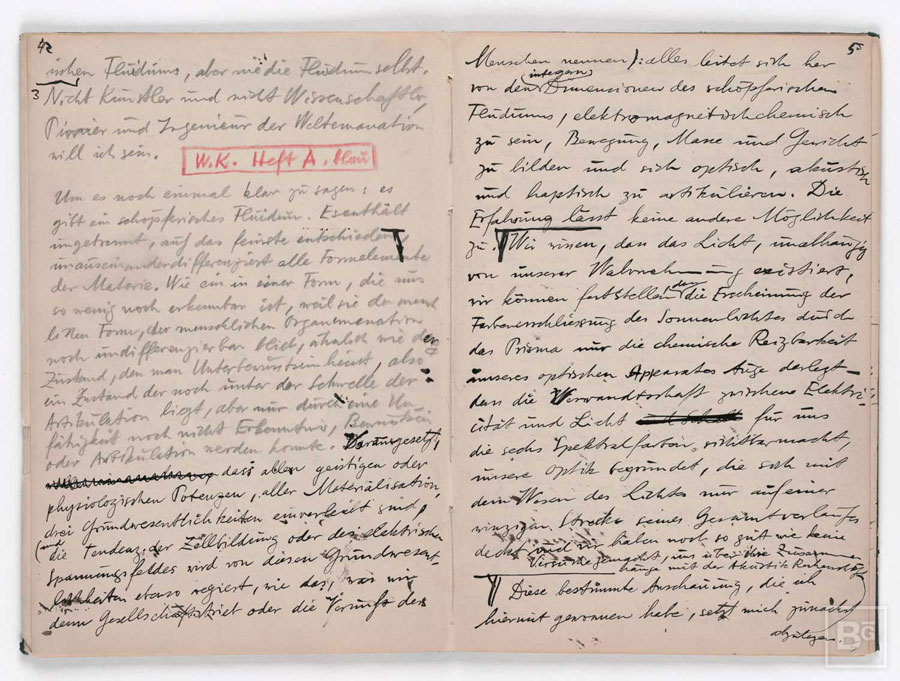 42
ischen Fluidums, aber nie die Fluidum selbst.
3
Nicht Künstler und nicht Wissenschaftler,
Pionier und Ingenieur der Weltemanation
will ich sein.
W.K. Heft A. blau
Um es noch einmal klar zu sagen: es
gibt ein schöpferisches Fluidum. Es enthält
ungetrennt, auf das feinste entschieden,
unauseinanderdifferenziert alle Formelemente
der Materie. Wie ein in einer Form, die uns
so wenig noch erkennbar ist, weil sie der mensch
lichen Form, der menschlichen Organemanation
noch undifferenzierbar blieb, ähnlich wie der
Zustand, den man Unterbewusstsein heisst, also
ein Zustand der noch unter der Schwelle der
Artikulation liegt, aber nur durch eine Un
fähigkeit noch nicht Erkenntnis, Bewusstsein
oder Artikulation werden konnte. Vorausgesetzt,
dass allen geistigen oder
physiologischen Potenzen, aller Materialisation,
drei Grundwesentlichkeiten einverleibt sind,
(und die Tendenz der Zellbildung oder des elektrischen
Spannungsfeldes wird von diesen Grundwesent
lichkeiten ebenso regiert, wie das, was wir
denn Gesellschaftstrieb oder die Vernunft des
5
Menschen nennen): alles leitet sich her
integern
von den Dimensionen des schöpferischen
Fluidums, elektromagnetischchemisch
zu sein, Bewegung, Masse und Gewicht
zu bilden und sich optisch, akustisch
und haptisch zu artikulieren. Die
Erfahrung lässt keine andere Möglichkeit
zu. Wir wissen, dass das Licht, unabhängig
von unserer Wahrnehmung existiert,
wir können feststellen, die Erscheinung der
Farbenerschliessung des Sonnenlichtes durch
das Prisma nur die chemische Reizbarkeit
unseres optischen Apparates Auge darlegt
dass die Verwandtschaft zwischen Elektri-
cität und Licht für uns
die sechs Spektralfarben sichtbar macht,
unsere Optik begründet, die sich mit
dem Wesen des Lichtes nur auf einer
winzigen Strecke seines Gesamtverlaufes
deckt und wir haben noch so gut wie keine
Versuche gemacht, uns über ihre Zusammen
hänge mit der Akustik Rechenschaft
Diese bestimmte Anschauung, die ich
hiermit gewonnen habe, setzt mich zunächst
abzulegen.
BG